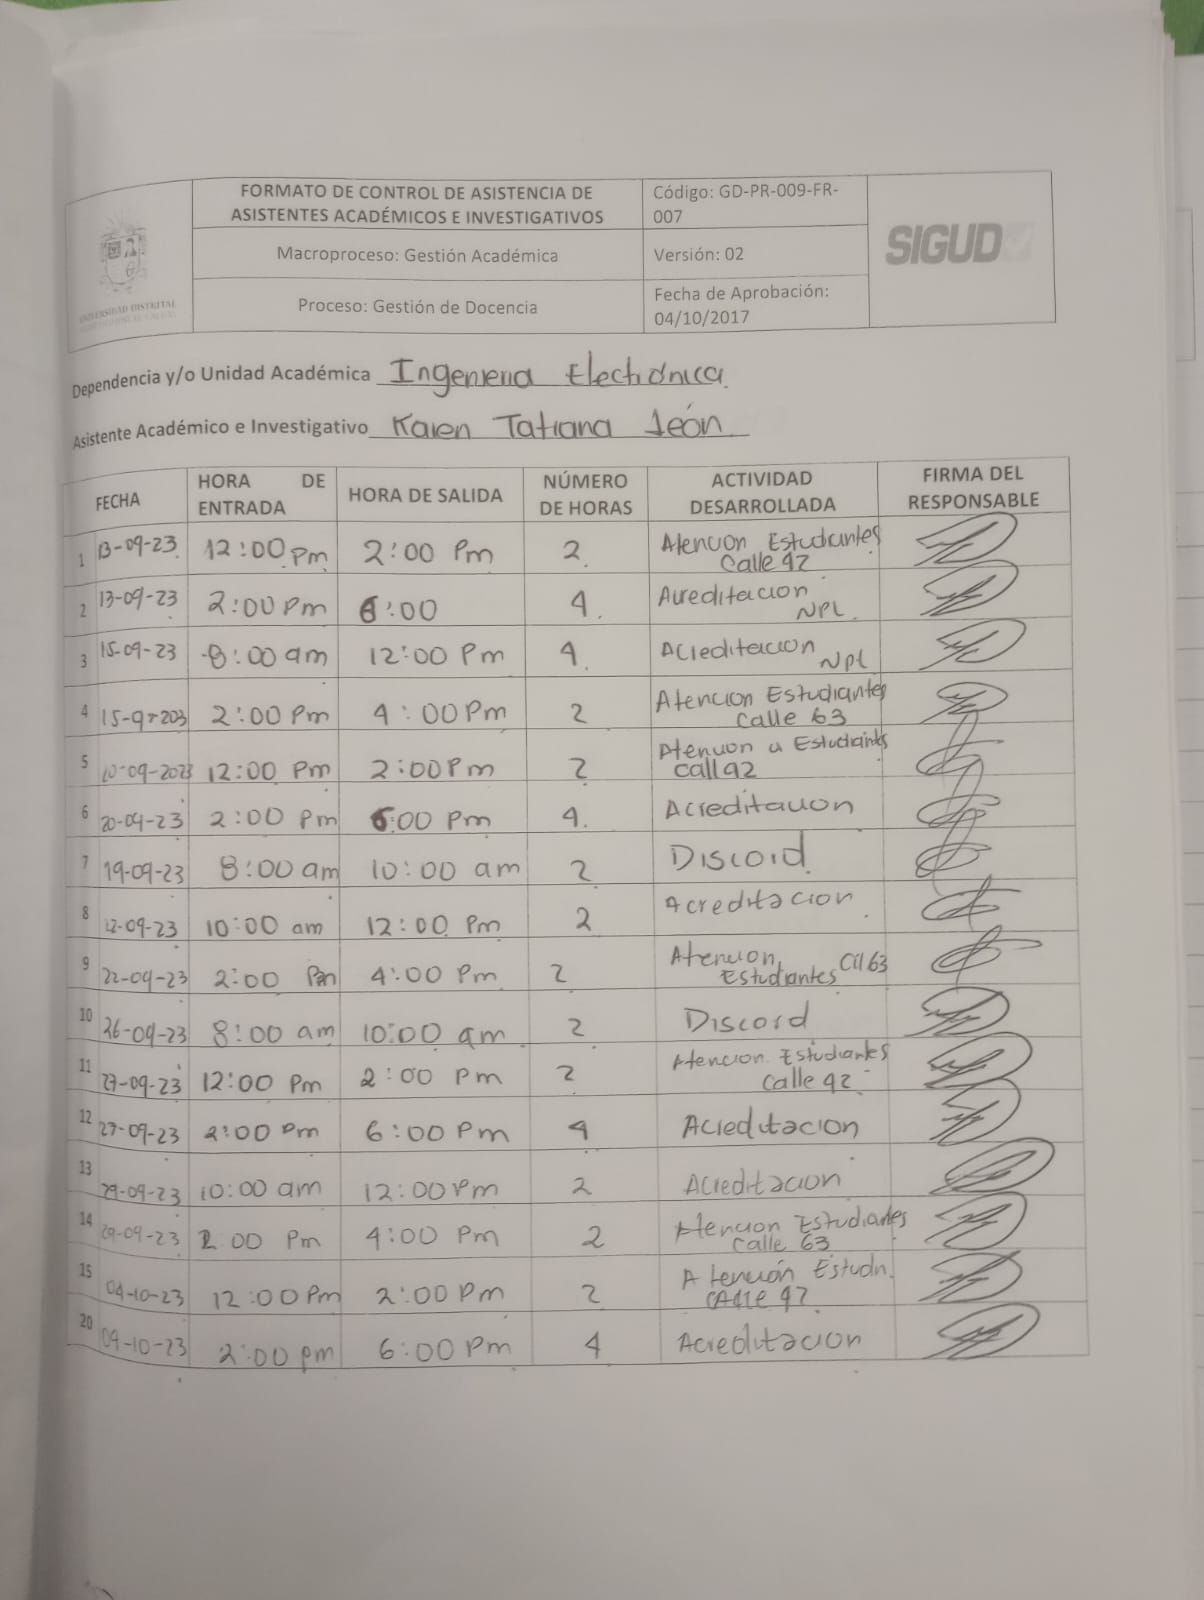 FORMATO DE CONTROL DE ASISTENCIA DE
ASISTENTES ACADÉMICOS E INVESTIGATIVOS
Código: GD-PR-009-FR-
007
Macroproceso: Gestión Académica
Versión: 02
SIGUD
Proceso: Gestión de Docencia
Fecha de Aprobación:
04/10/2017
UNIVERSIDAD DISTRITAL
Dependencia y/o Unidad Académica Ingenieria Electrónica
Asistente Académico e Investigativo Karen Tatiana León
FECHA HORA DE ENTRADA HORA DE SALIDA NÚMERO DE HORAS ACTIVIDAD DESARROLLADA FIRMA DEL RESPONSABLE
1 13-09-23 12:00 Pm 2:00 Pm 2 Atencion Estudiantes
Calle 42
2 13-09-23 2:00 Pm 6:00 4. Acreditacion
NPL.
3 15-09-23 8:00 am 12:00 Pm 4. Acreditacion
NPL
4 15-9-203 2:00 Pm 4:00 Pm 2 Atencion Estudiantes
Calle 63
5 12:00 Pm 2:00 Pm 2 Atencion a Estudiantes
Call 42
6 20-09-23 2:00 Pm 6:00 Pm 4. Acreditacion
7 19-09-23 8:00 am 10:00 am 2 Discord
8 22-09-23 10:00 am 12:00 Pm 2 Acreditacion
9 22-09-23 2:00 Pm 4:00 Pm 2 Atencion
Estudiantes Cll 63
10 26-09-23 8:00 am 10:00 am 2 Discord
11 27-09-23 12:00 Pm 2:00 Pm 2 Atencion Estudiantes
Calle 42
12 27-09-23 2:00 Pm 6:00 Pm 4 Acreditacion
13 29-09-23 10:00 am 12:00 Pm 2 Acreditacion
14 29-09-23 2:00 Pm 4:00 Pm 2 Atencion Estudiantes
Calle 63
15 04-10-23 12:00 Pm 2:00 Pm 2 Atención Estudn.
CAlle 42
20 04-10-23 2:00 pm 6:00 Pm 4 Acreditacion